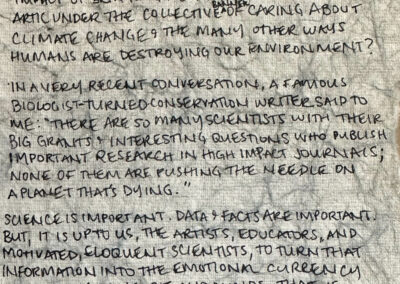 ARTIC UNDER THE COLLECTIVE BANNER OF CARING ABOUT
CLIMATE CHANGE & THE MANY OTHER WAYS
HUMANS ARE DESTROYING OUR ENVIRONMENT?
IN A VERY RECENT CONVERSATION, A FAMOUS
BIOLOGIST-TURNED-CONSERVATION WRITER SAID TO
ME: "THERE ARE SO MANY SCIENTISTS WITH THEIR
BIG GRANTS & INTERESTING QUESTIONS WHO PUBLISH
IMPORTANT RESEARCH IN HIGH IMPACT JOURNALS;
NONE OF THEM ARE PUSHING THE NEEDLE ON
A PLANET THAT'S DYING."
SCIENCE IS IMPORTANT. DATA & FACTS ARE IMPORTANT.
BUT, IT IS UP TO US, THE ARTISTS, EDUCATORS, AND
MOTIVATED, ELOQUENT SCIENTISTS, TO TURN THAT
INFORMATION INTO THE EMOTIONAL CURRENCY